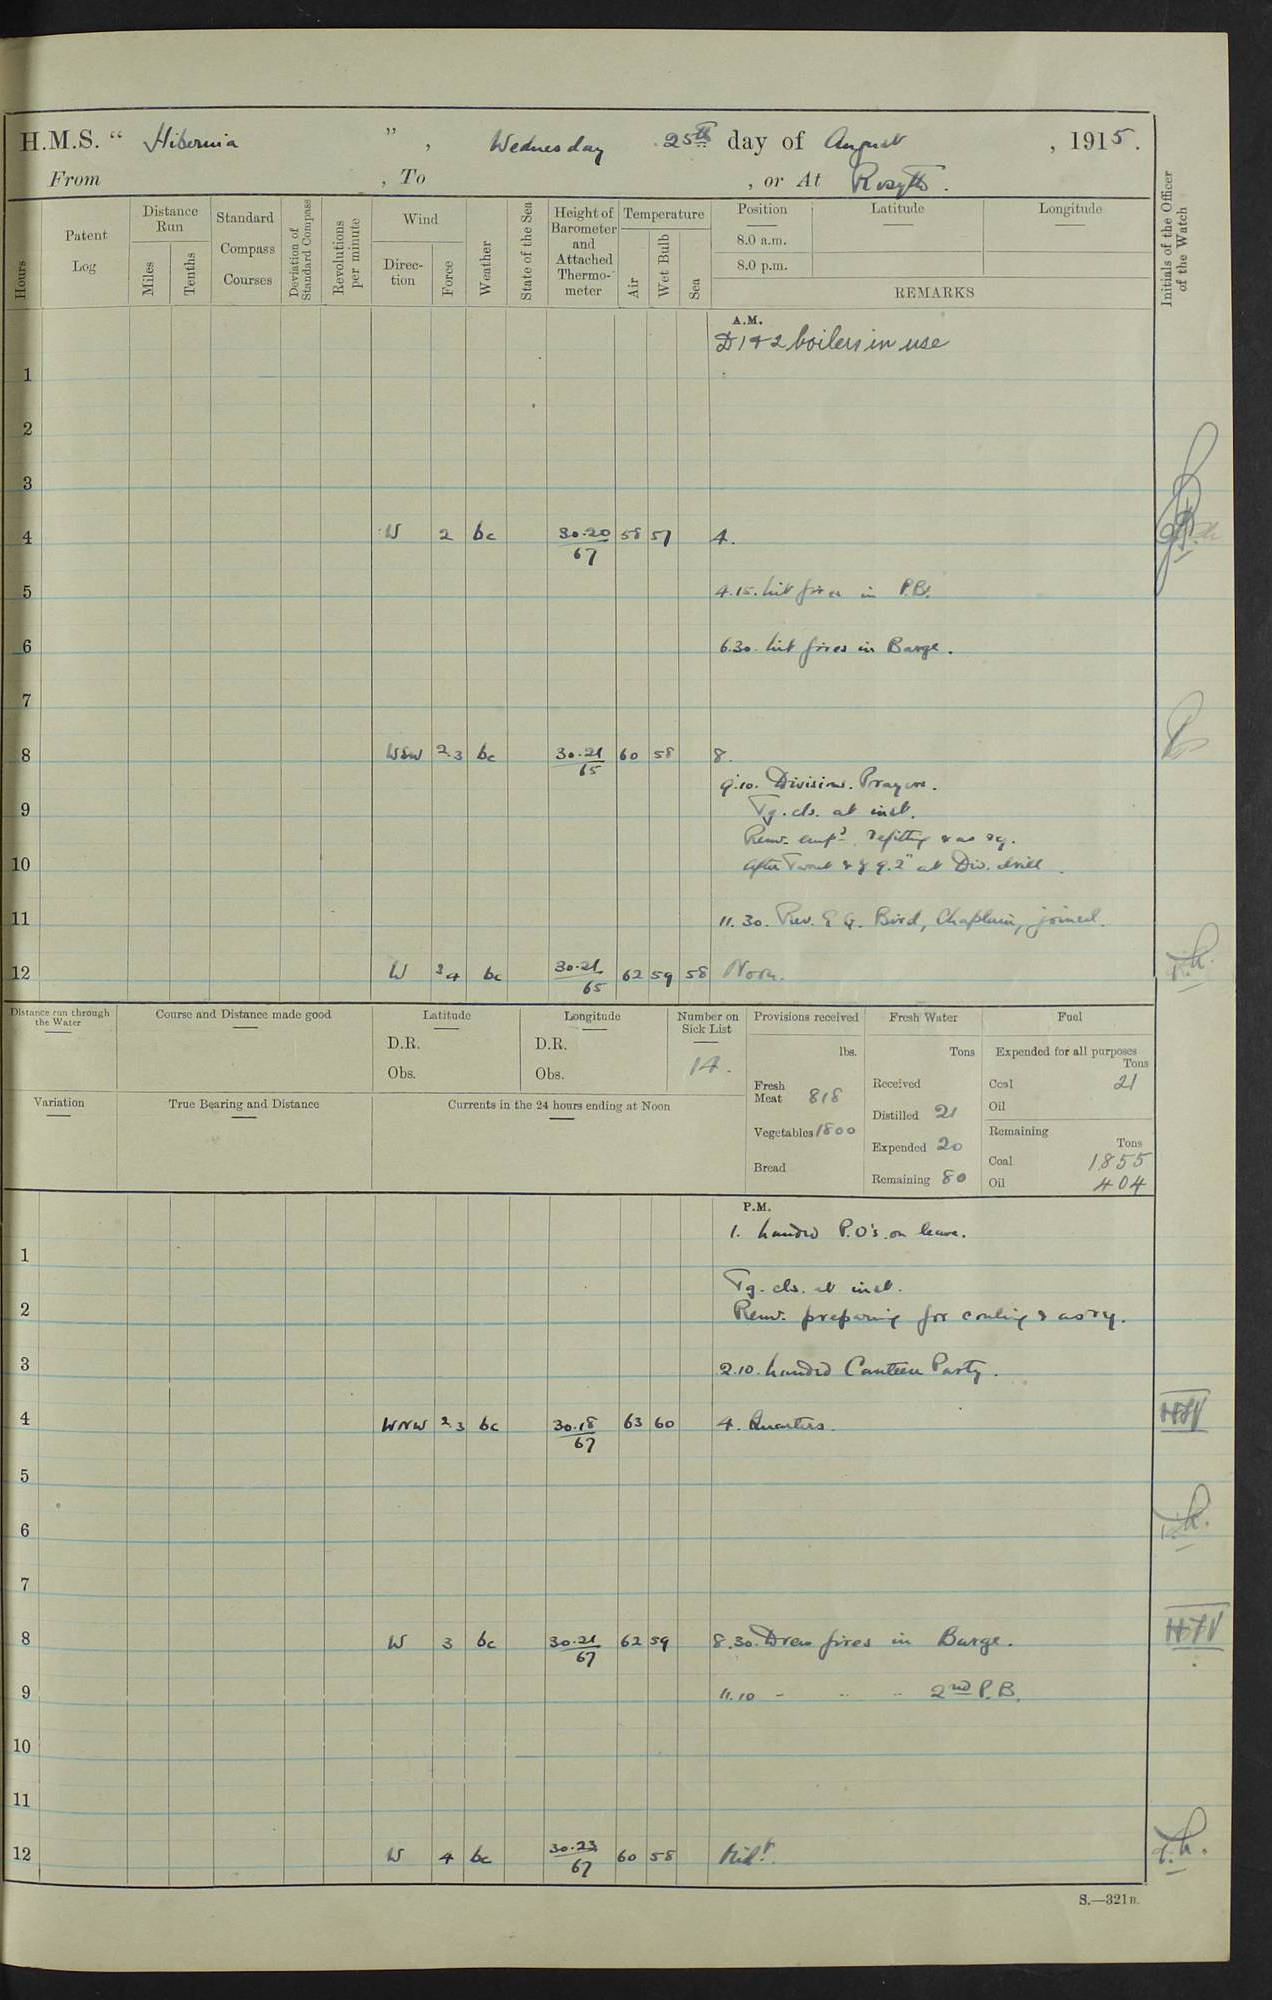 H.M.S. “ Hibernia ” , Wednesday 25th day of August , 1915.
From , To , or At Rosyth.
Hours
Patent Log
Distance Run
Miles
Tenths
Standard Compass Courses
Deviation of Standard Compass
Revolutions per minute
Wind
Direc-tion
Force
Weather
State of the Sea
Height of Barometer and Attached Thermo-meter
Temperature
Air
Wet Bulb
Sea
Position
8.0 a.m.
8.0 p.m.
Latitude
Longitude
REMARKS
Initials of the Officer of the Watch
A.M.
D 1 & 2 boilers in use
1
2
3
4 W 2 bc 30.20/67 58 57 4.
5 4.15. lit fires in P.B.
6 6.30. lit fires in Barge.
7
8 WSW 2.3 bc 30.21/65 60 58 8.
9.10. Divisions. Prayers.
9 Tg. cls. at inst.
Remr. empd. refitting & as rq.
10 After Turret & 9.2" at Div. drill.
11 11.30. Rev. E G. Bird, Chaplain, joined.
12 W 3 4 bc 30.21/65 62 59 58 Noon.
Distance run through the Water
Course and Distance made good
Latitude
D.R.
Obs.
Longitude
D.R.
Obs.
Number on Sick List
14.
Provisions received
lbs.
Fresh Meat 818
Vegetables 1800
Bread
Fresh Water
Tons
Received
Distilled 21
Expended 20
Remaining 80
Fuel
Expended for all purposes
Tons
Coal 21
Oil
Remaining
Tons
Coal 1855
Oil 404
Variation
True Bearing and Distance
Currents in the 24 hours ending at Noon
P.M.
1. landed P.O's. on leave.
1
Tg. cls. at inst.
2 Remr. preparing for coaling & as rq.
3 2.10. landed Canteen Party.
4 WNW 2 3 bc 30.18/67 63 60 4. Quarters.
5
6
7
8 W 3 bc 30.21/67 62 59 8.30. Drew fires in Barge.
9 11.10 - " " 2nd P.B.
10
11
12 W 4 bc 30.23/67 60 58 Midt.
S.—321B.